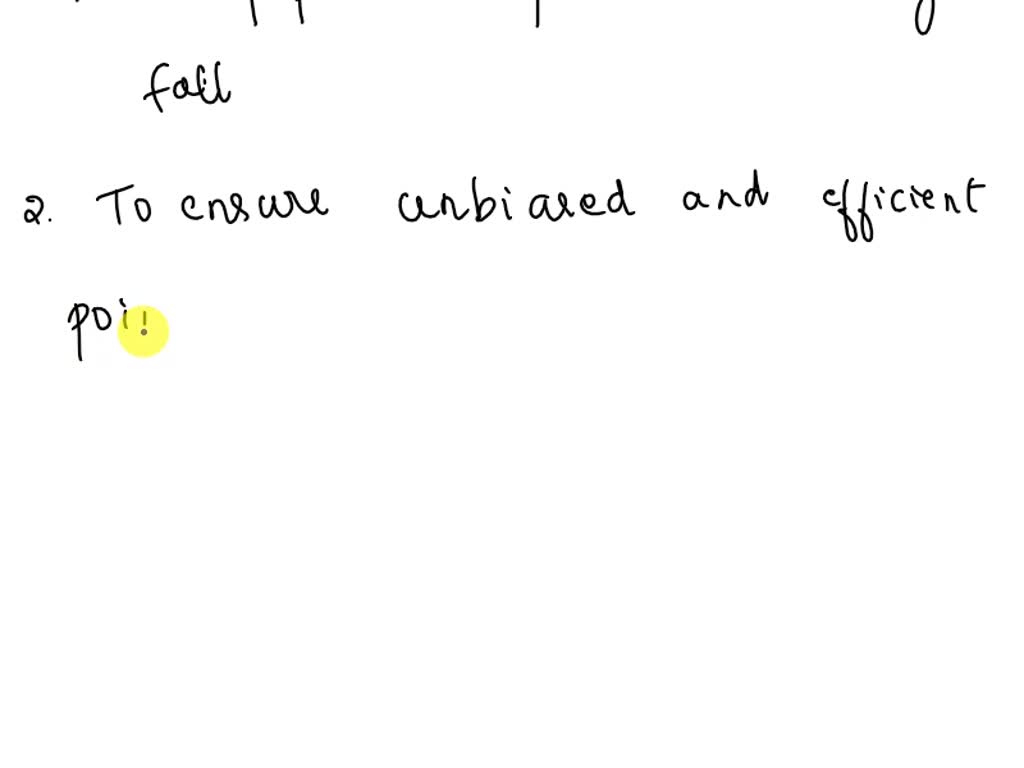 fall
2. To ensure unbiased and efficient
poi